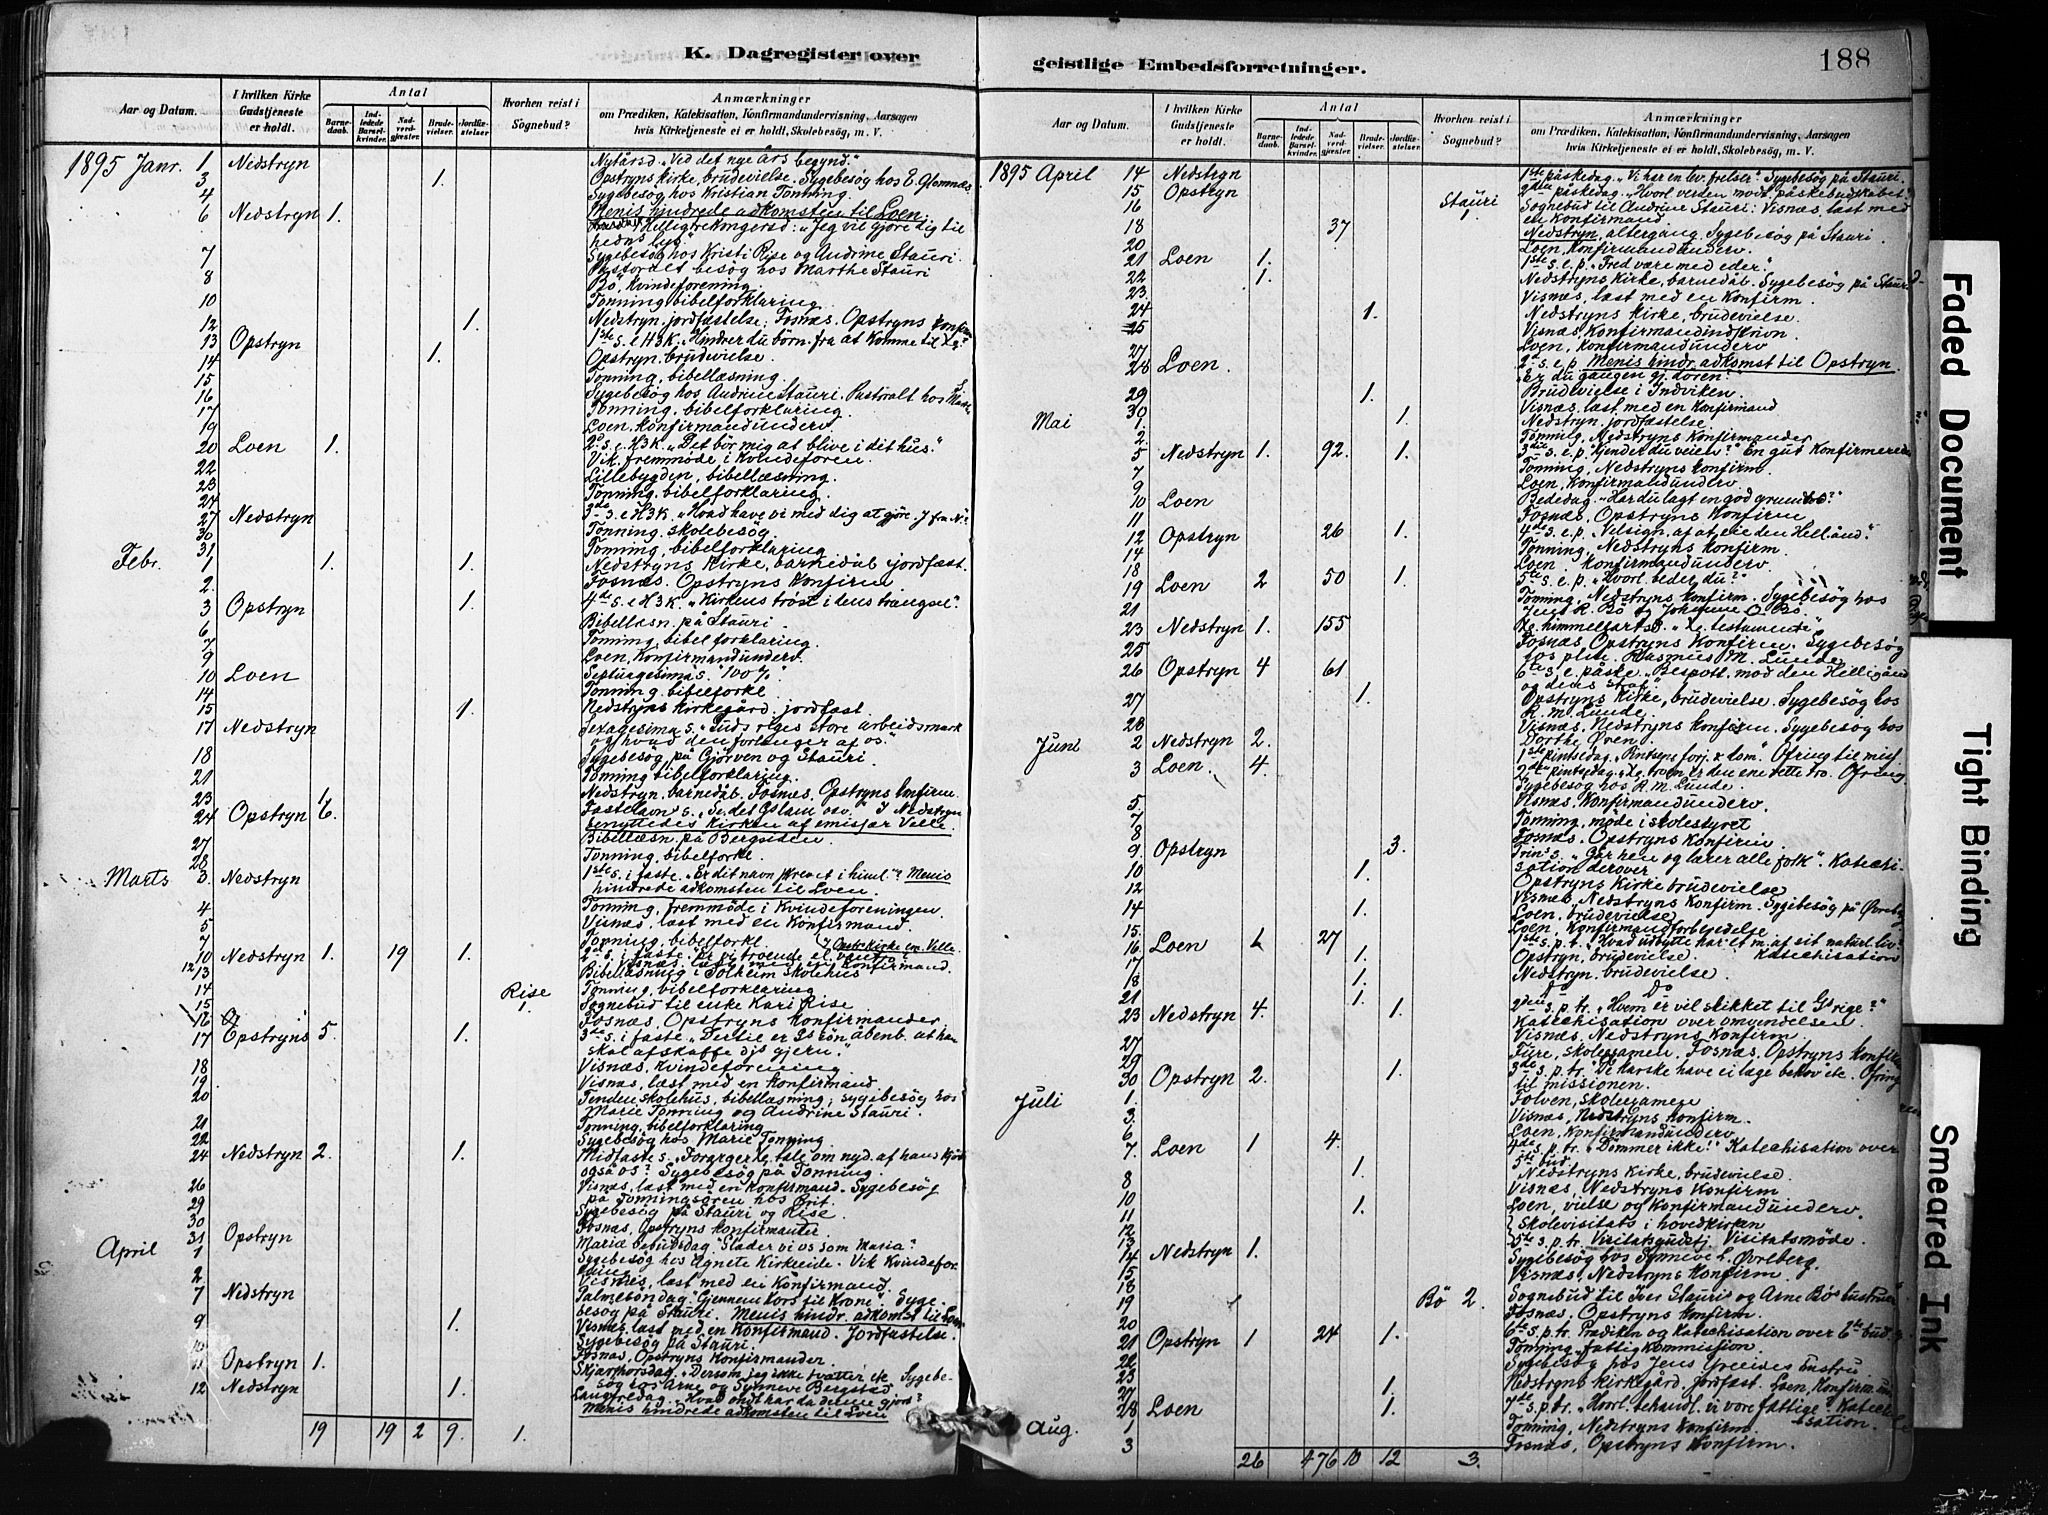 K. Dagregister over
geistlige Embedsforretninger.
188
Aar og Datum.
I hvilken Kirke Gudstjeneste er holdt.
Antal
Barnedaab.
Indledede Barselkvinder.
Nadverdgjæster.
Brudevielser.
Jordfæstelser.
Hvorhen reist i Sognebud?
Anmærkninger
om Prædiken, Katekisation, Konfirmandundervisning, Aarsagen
hvis Kirketjeneste ei er holdt, Skolebesøg, m. V.
1895 Janr. 1 Nedstryn Nytårsd. "Ved det nye Års begynd."
3 1. Opstryns kirke, brudevielse. Sygebesøg hos E. Glomnæs
4 Sygebesøg hos Kristian Tonning.
6 Nedstryn 1. Menis hindrede adkomsten til Loen.
Helligtrekongersd: "Jeg vil gjøre dig til
hedns lys"
7 Sygebesøg hos Kristi Rise og Andrine Stauri.
besøg hos Marthe Stauri
8 Bö, Kvindeforening.
10 Tonning, bibelforklaring.
12 1. Nedstryn, jordfæstelse; Fosnæs, Opstryns konfirm
13 Opstryn 1ste s. e H3K. "Hindrer du börn fra at komme til
14 1. Opstryn, brudevielse.
15 Tonning, bibellæsning.
16 Sygebesøg hos Andrine Stauri.
17 Tonning, bibelforklaring.
19 Loen, konfirmandunderv.
20 Loen 1. 2d s. e. H3K. "Det bør mig at blive i dit hus."
22 Vik, fremmøde i Kvindeforen.
23 Lillebygden, bibellæsning.
24 Tonning, bibelforklaring.
27 Nedstryn 3de s. e H3K. "Hvad have vi med dig at gjøre, J fra N."
30 Tonning, skolebesøg
31 Tonning, bibelforklaring
Febr. 1 1. 1. Nedstryns Kirke, barnedåb jordfæst.
2. Fosnæs. Opstryns Konfirm
3 Opstryn 1. 4de s. e H3K. "Kirkens trøst i dens trængsel".
6 Bibellæsn. på Stauri.
7 Tonning, bibelforklaring.
9 Loen, Konfirmandunderv.
10 Loen Septuagesima s.
14 Tonning, bibelforkl.
15 1. Nedstryns Kirkegård, jordfæst.
17 Nedstryn Sexagesima s. "Guds riges store arbeidsmark
og hvad den forlanger af os."
18 Sygebesøg på Gjørven og Stauri.
21 Tonning bibelforklaring.
23 1. Nedstryn, barnedåb. Fosnæs, Opstryns konfirm.
24 Opstryn 6. Fastelavns s.
benyttedes Kirken af emisjær Velle.
27 Bibellæsn. på Bergsiden.
28 Tonning, bibelforkl.
Marts 3. Nedstryn 1ste s. i faste. "Er dit navn skrevet i himl."? Menis
hindrede adkomsten til Loen.
4 Tonning, fremmøde i Kvindeforeningen.
5 Visnæs, læst med en Konfirmand.
7 Tonning, bibelforkl.
10 Nedstryn 1. 19 1. 2d s. i faste.
12 Visnæs, læst med en konfirmand.
13 Bibellæsning i Solheim skolehus
14 Tonning, bibelforklaring
15 Rise 1. Sognebud til enke Kari Rise
16 Fosnæs, Opstryns konfirmander
17 Opstryns 5. 1. 3de s. i faste
18 Visnæs, Kvindeforening.
19 Visnæs, læst med en konfirmand.
20 Tenden skolehus, bibellæsning; sygebesøg hos
Marie Tonning og Andrine Stauri.
21 Tonning, bibelforklaring
22 Sygebesøg hos Marie Tonning
24 Nedstryn 2. 1. Midfaste s.
også os? Sygebesøg på Tonning.
26 Visnæs, læst med en konfirmand. Sygebesøg
på Tonningsøren hos Brit.
29 Sygebesøg på Stauri og Rise.
30 Fosnæs, Opstryns konfirmander.
31 Opstryn Mariæ bebudsdag "Glæder vi os som Maria?
April 1 Sygebesøg hos Agnete Kirkeeide. Vik Kvindefor
2 Visnæs, læst med en Konfirmand.
7 Nedstryn Palmesöndag. "Gjennem Kors til Krone". Syge-
besøg på Stauri. Menis hindr. adkomst til Loen
9 1. Visnæs læst med en konfirmand. Jordfæstelse.
10 Sygebesøg på Stauri.
11 Opstryn 1. Fosnæs, Opstryns Konfirmander.
Skjærthorsdag, "Dersom jeg ikke tvætter etc Sygebe-
søg hos Arne og Synneve Bergstad
12 Nedstryn 1. Langfredag. Hvad ondt har da denne gjort?
Menis hindrede adkomsten til Loen
19 19 2 9. 1.
Aar og Datum.
I hvilken Kirke Gudstjeneste er holdt.
Antal
Barnedaab.
Indledede Barselkvinder.
Nadverdgjæster.
Brudevielser.
Jordfæstelser.
Hvorhen reist i Sognebud?
Anmærkninger
om Prædiken, Katekisation, Konfirmandundervisning, Aarsagen
hvis Kirketjeneste ei er holdt, Skolebesøg, m. V.
1895 April 14 Nedstryn 1ste påskedag. "Vi har en lev. frelser". Sygebesøg på Stauri.
15 Opstryn 2den påskedag. "Hvorl. verden modt. påskebudskabet"
16 Stauri 1. Sognebud til Andrine Stauri. Visnæs, læst med
en konfirmand
18 37 Nedstryn, altergang. Sygebesøg på Stauri.
20 Loen, Konfirmandunderv.
21 Loen 1. 1ste s. e. p. "Fred være med eder."
22 1. Nedstryns Kirke, barnedåb. Sygebesøg på Stauri
23. Visnæs, læst med en Konfirm.
24 1. Nedstryns kirke, brudevielse.
25 Visnæs, Konfirmandindskrivn.
27 Loen, konfirmandunderv
28 Loen. 2d s. e. p. Menis hindr. adkomst til Opstryn
"Er du gangen gj. døren?"
29 1. Brudevielse i Indviken.
30 Visnæs, læst med en Konfirmand
Mai 1. 1. Nedstryn, jordfæstelse.
2. Tonning, Nedstryns Konfirmander
5 Nedstryn 1. 92. 1. 3die s. e. p. "Kjender du veien?" En gut Konfirmeredes
7 Tonning, Nedstryns konfirm.
9 Loen, Konfirmandunderv.
10 Loen Bededag. "Har du lagt en god grundvold?"
11 Fosnæs, Opstryns Konfirm
12 Opstryn 26 1. 4de s. e. p.
14 Tonning, Nedstryns konfirm.
18 Loen, konfirmandunderv.
19 Loen 2 50 1. 5te s. e. p. "Hvorl. beder du?"
21 Tonning, Nedstryns konfirm. Sygebesøg hos
Jens R. Bö og Johanne O Bö.
23 Nedstryn 1. 155 Kr. himmelfartsd. "Kr. testamente"
25 Fosnæs, Opstryns Konfirm. Sygebesøg
hos Rasmus M. Lunde
26 Opstryn 4 61 6te s. e. påske. "Bespott. mod den Helligånd
27 1. Opstryns Kirke, brudevielse. Sygebesøg hos
R. M. Lunde
28 Visnæs, Nedstryns konfirm. Sygebesøg hos
Dorthe Øren.
Juni 2 Nedstryn 2. 1ste pintsedag. Ofring til mis
3 Loen. 4. 2den pintsedag. Ofring
Sygebesøg hos R. M. Lunde.
5. Visnæs, Konfirmandunderv.
7 Tonning, møde i skolestyret
8 Fosnæs, Opstryns konfirm
9 Opstryn 3. Trin. s. "Går hen og lærer alle folk". Katechi-
sation derover
10 1. Opstryns Kirke brudevielse
12 Visnæs, Nedstryns Konfirm. Sygebesøg på Øvreberg
14 1. Loen, brudevielse
15. Loen, Konfirmandforberedelse
16 Loen 27 1. 1ste s. p. t. "Hvad udbytte har et m. af sit naturl. liv"
17 1. Opstryn, brudevielse. Katechisation
18 1. Nedstryn. brudevielse.
21 1. Do Do
23 Nedstryn 4. 1. 2den s. p. tr. "Hvem er vel skikket til Gs rige?"
Katechisation over omvendelsen
27 Visnæs, Nedstryns Konfirm.
29 skoleexamen. Fosnæs, Opstryns konfirm
30 Opstryn 2. 1. 3de s. p. tr. "De karske have ei læge behov" etc. Ofring
til missionen.
Juli 1. Folven, skoleexamen
3. Visnæs, Nedstryns konfirm.
6 Loen, Konfirmandunderv
7. Loen 1 4. 4de s. p. tr. "Dømmer ikke!" Katechisation over
5te bud.
8 1. Nedstryns Kirke, brudevielse.
10 Visnæs, Nedstryns Konfirm
11 1. Loen, vielse og Konfirmandunderv.
12 Skolevisitats i hovedkirken
13
14 Nedstryn 1. 5te s. p. tr. Visitatsgudstj. Visitatsmøde.
15 Sygebesøg hos Synneve L. Øvreberg.
18 Visnæs, Nedstryns Konfirm.
19 Bö 2. Sognebud til Iver Stauris og Arne Bøs hustruer
20 Fosnæs, Opstryns konfirm.
21 Opstryn 1 24 1. 6te s. p. tr. Prædiken og Katechisation over 6te bud.
22 Tonning, fattigkommission.
23 Sygebesøg hos Jens Greeides hustru
27 1. Nedstryns kirkegård, jordfæst. Loen, Konfirm.
28 Loen 1. 7de s. p. tr. "Hvorl. behandl. vi vore fattige. Kateche-
sation.
Aug. 1 Tonning, Nedstryns konfirm.
3 Fosnæs, Opstryns Konfirm.
26 476 10 12 3.
Faded Document
Tight Binding
Smeared Ink